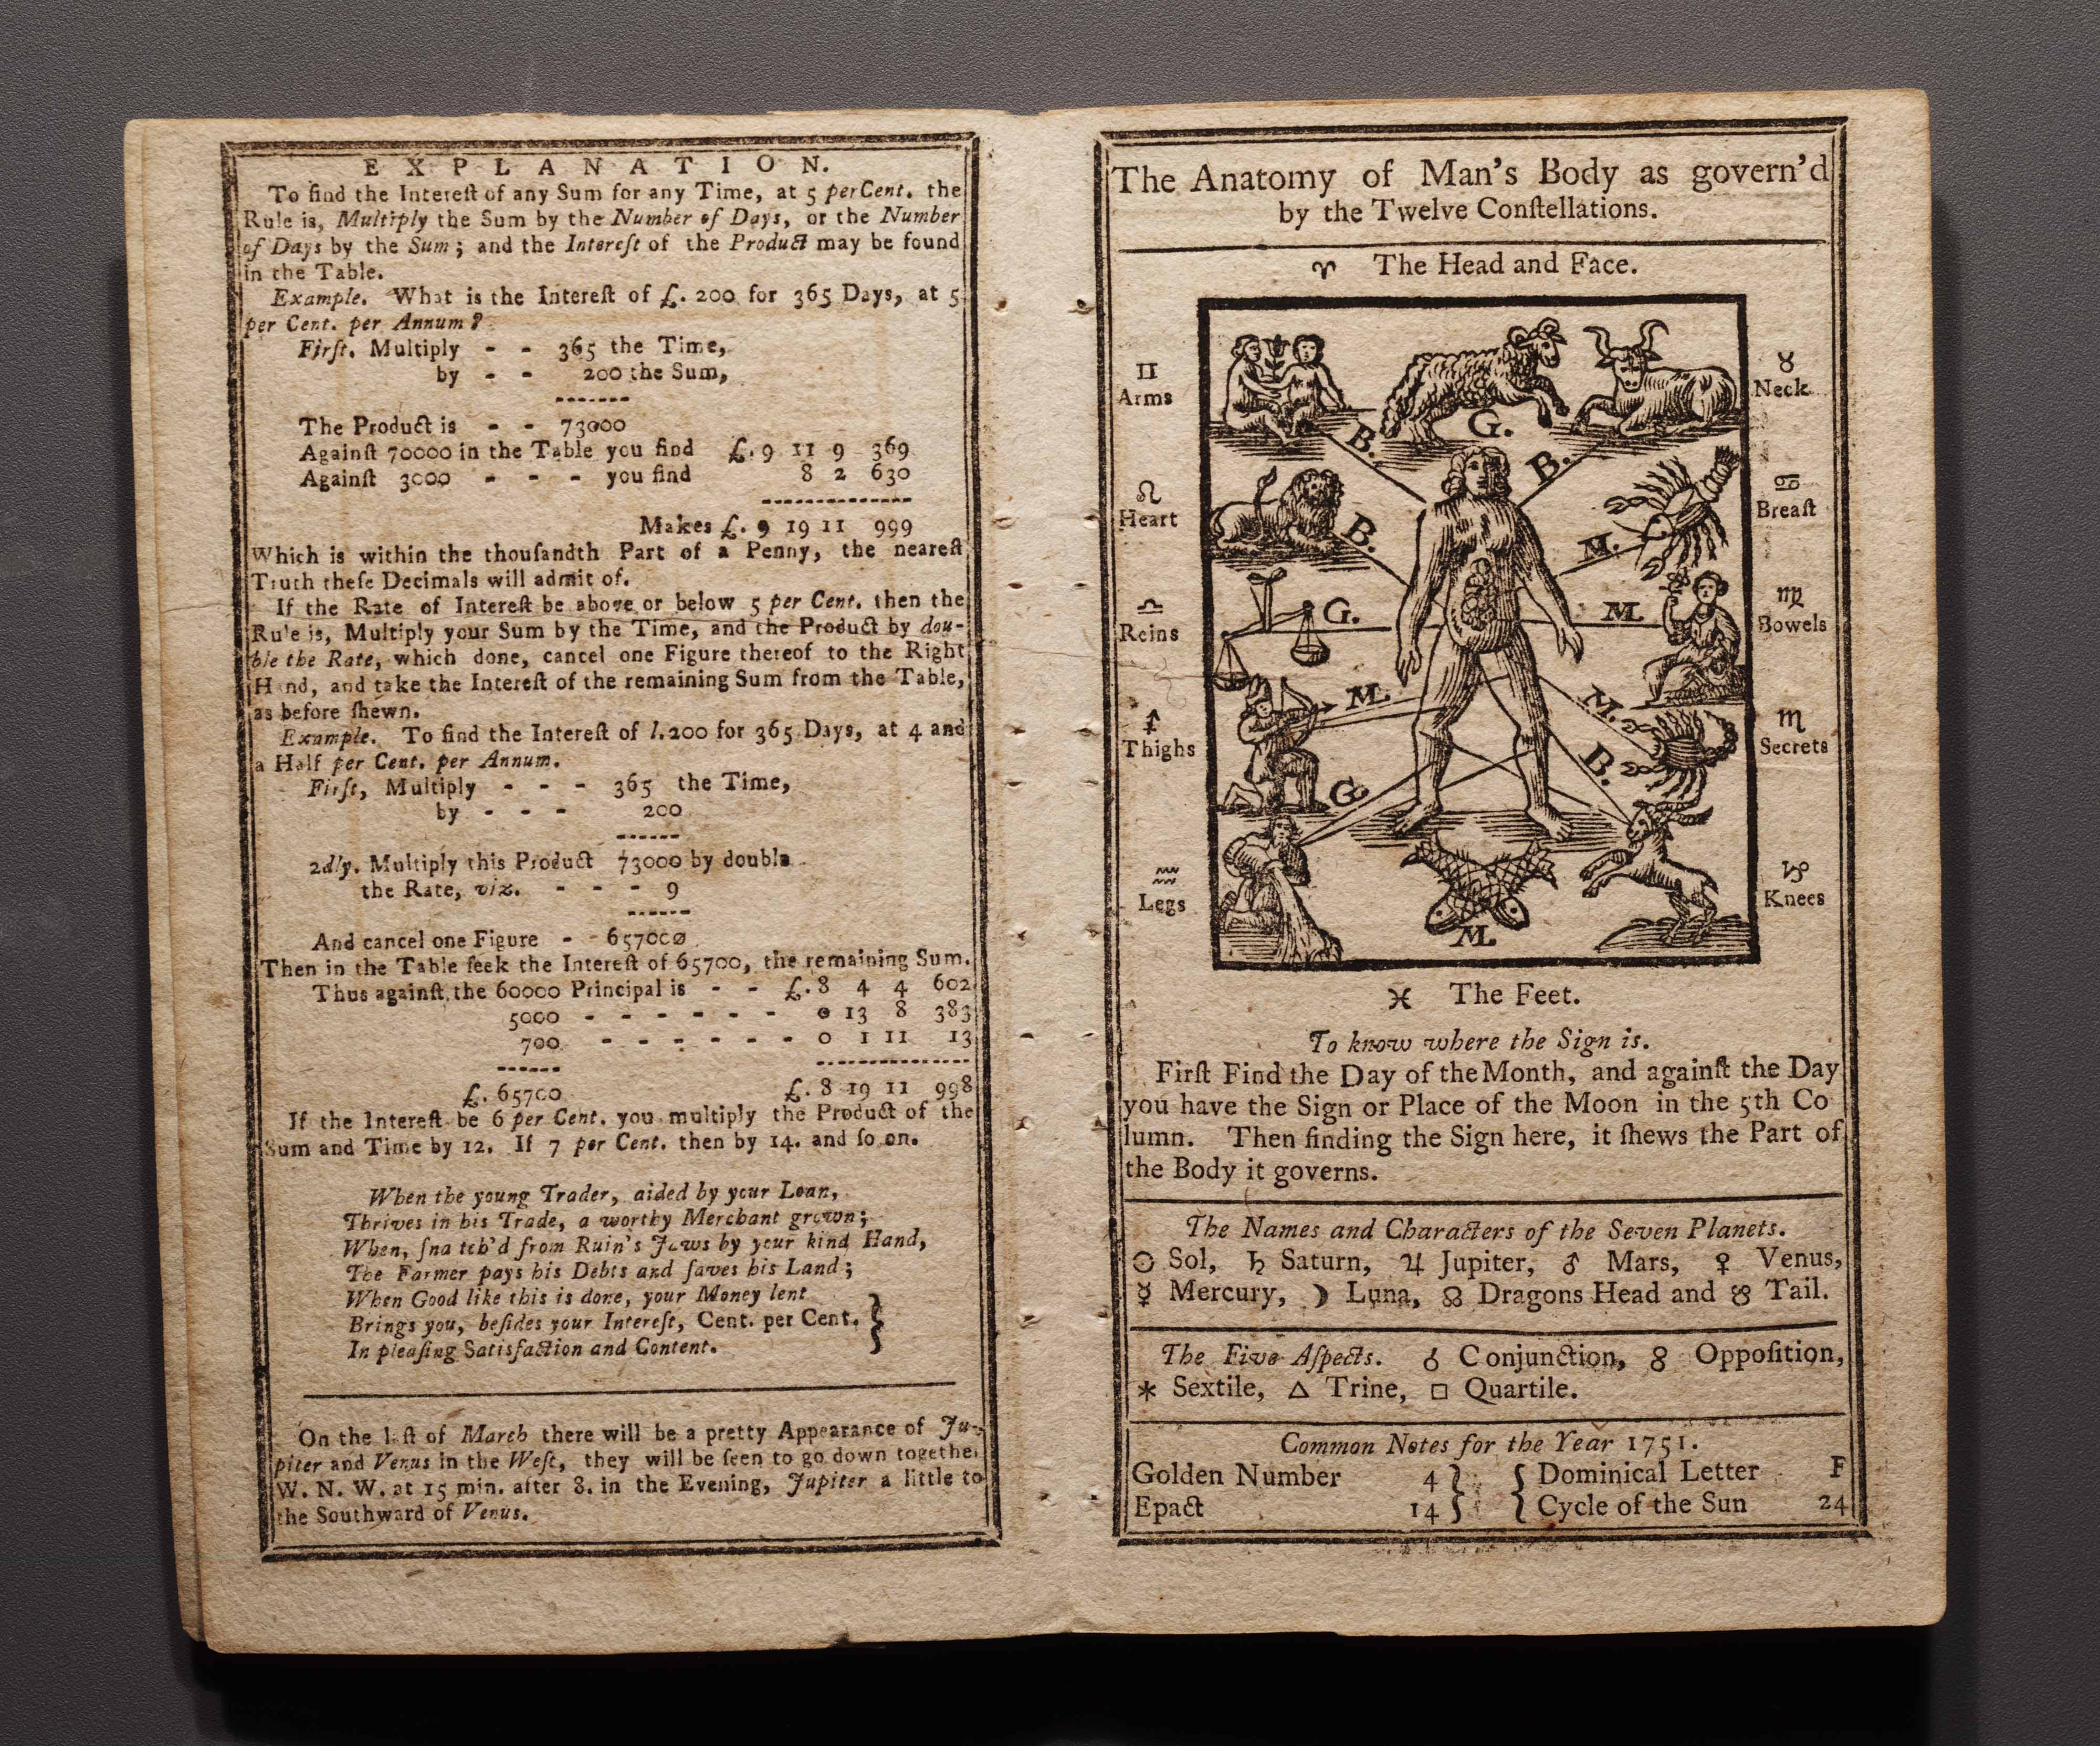 EXPLANATION.
To find the Intereſt of any Sum for any Time, at 5 per Cent. the
Rule is, Multiply the Sum by the Number of Days, or the Number
of Days by the Sum; and the Intereſt of the Product may be found
in the Table.
Example. What is the Intereſt of £. 200 for 365 Days, at 5
per Cent. per Annum?
Firſt. Multiply - - 365 the Time,
by - - 200 the Sum,
-------
The Product is - - 73000
Againſt 70000 in the Table you find £. 9 11 9 369
Againſt 3000 - - - you find 8 2 630
--------------
Makes £. 9 19 11 999
Which is within the thouſandth Part of a Penny, the neareſt
Truth theſe Decimals will admit of.
If the Rate of Intereſt be above or below 5 per Cent. then the
Rule is, Multiply your Sum by the Time, and the Product by dou-
ble the Rate, which done, cancel one Figure thereof to the Right
H nd, and take the Intereſt of the remaining Sum from the Table,
as before ſhewn.
Example. To find the Intereſt of l. 200 for 365 Days, at 4 and
a Half per Cent. per Annum.
Firſt, Multiply - - - 365 the Time,
by - - - 200
------
2dly. Multiply this Product 73000 by double
the Rate, viz. - - - 9
------
And cancel one Figure - 657000
Then in the Table ſeek the Intereſt of 65700, the remaining Sum.
Thus againſt the 60000 Principal is - - £. 8 4 4 602
5000 - - - - - - - 0 13 8 383
700 - - - - - - - 0 1 11 13
------ --------------
£. 65700 £. 8 19 11 998
If the Intereſt be 6 per Cent. you multiply the Product of the
Sum and Time by 12. If 7 per Cent. then by 14. and ſo on.
When the young Trader, aided by your Loan,
Thrives in his Trade, a worthy Merchant grown;
When, ſna tch'd from Ruin's Jaws by your kind Hand,
The Farmer pays his Debts and ſaves his Land;
When Good like this is done, your Money lent
Brings you, beſides your Intereſt, Cent. per Cent. }
In pleaſing Satisfaction and Content.
On the laſt of March there will be a pretty Appearance of Ju-
piter and Venus in the Weſt, they will be ſeen to go down together
W. N. W. at 15 min. after 8. in the Evening, Jupiter a little to
the Southward of Venus.
The Anatomy of Man's Body as govern'd
by the Twelve Conſtellations.
♈ The Head and Face.
♊ ♉
Arms Neck
G.
B. B.
♌ ♋
Heart Breaſt
B. M.
♎ ♍
Reins Bowels
G. M.
♐ ♏
Thighs Secrets
M. M.
G. B.
♒ ♑
Legs Knees
M.
♓ The Feet.
To know where the Sign is.
Firſt Find the Day of the Month, and againſt the Day
you have the Sign or Place of the Moon in the 5th Co
lumn. Then finding the Sign here, it ſhews the Part of
the Body it governs.
The Names and Characters of the Seven Planets.
☉ Sol, ♄ Saturn, ♃ Jupiter, ♂ Mars, ♀ Venus,
☿ Mercury, ☽ Luna, ☊ Dragons Head and ☋ Tail.
The Five Aſpects. ☌ Conjunction, ☍ Oppoſition,
* Sextile, △ Trine, □ Quartile.
Common Notes for the Year 1751.
Golden Number 4 } { Dominical Letter F
Epact 14 } { Cycle of the Sun 24